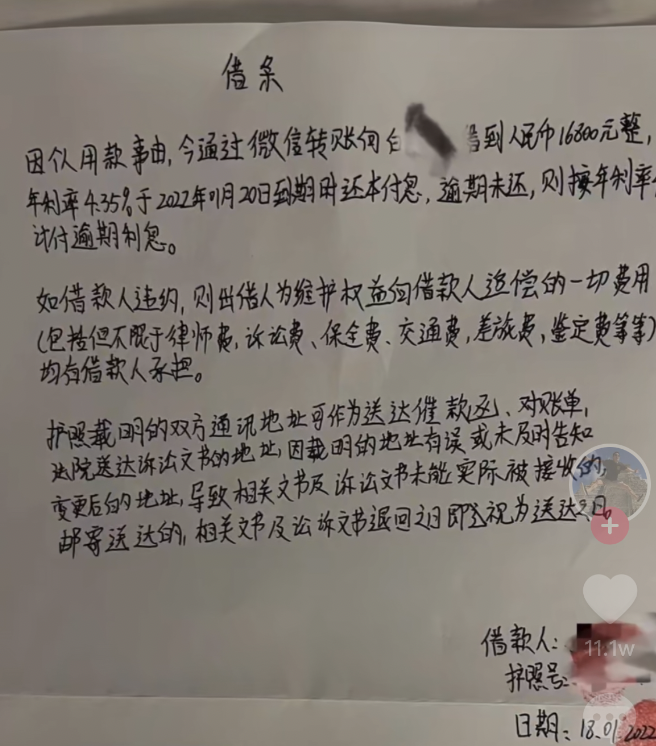 借条
因仫用款事由,今通过微信转账向白 借到人民币16800元整,
年利率4.35%于2022年01月20日到期时还本付息,逾期未还,则按年利率
计付逾期利息。
如借款人违约,则出借人为维护权益向借款人追偿的一切费用
(包括但不限于律师费,诉讼费、保全费、交通费,差旅费,鉴定费等等)
均有借款人承担。
护照载明的双方通讯地址可作为送达催款函、对账单,
法院送达诉讼文书的地址,因载明的地址有误或未及时告知
变更后的地址,导致相关文书及诉讼文书未能实际被接收的,
邮寄送达的,相关文书及讼诉文书退回之日即视为送达之日。
借款人:
护照号:
11.1w
日期:18.01.2022